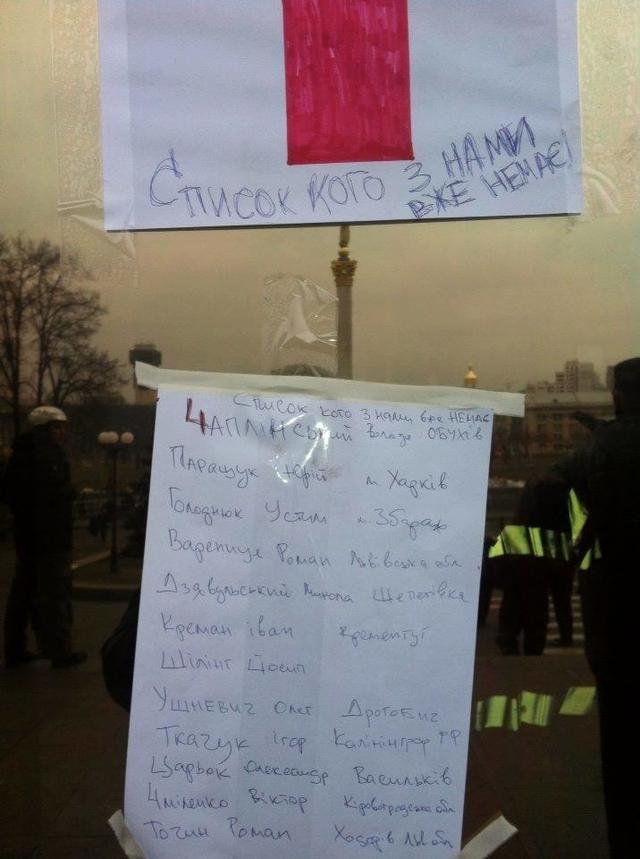 Список кого з нами
вже немає!
Список кого з нами вже немає
Чаплінський Влодя Обухів
Паращук Юрій м Харків
Голоднюк Устим м. Збараж
Варениця Роман Львівська обл.
Дзявульський Микола Шепетівка
Креман іван Кременчуг
Шілінг Йосип
Ушневич Олег Дрогобич
Ткачук ігор Калінінград РФ
Царьок Олександр Васильків
Чміленко Віктор Кіровоградська обл
Точин Роман Ходорів Льв обл